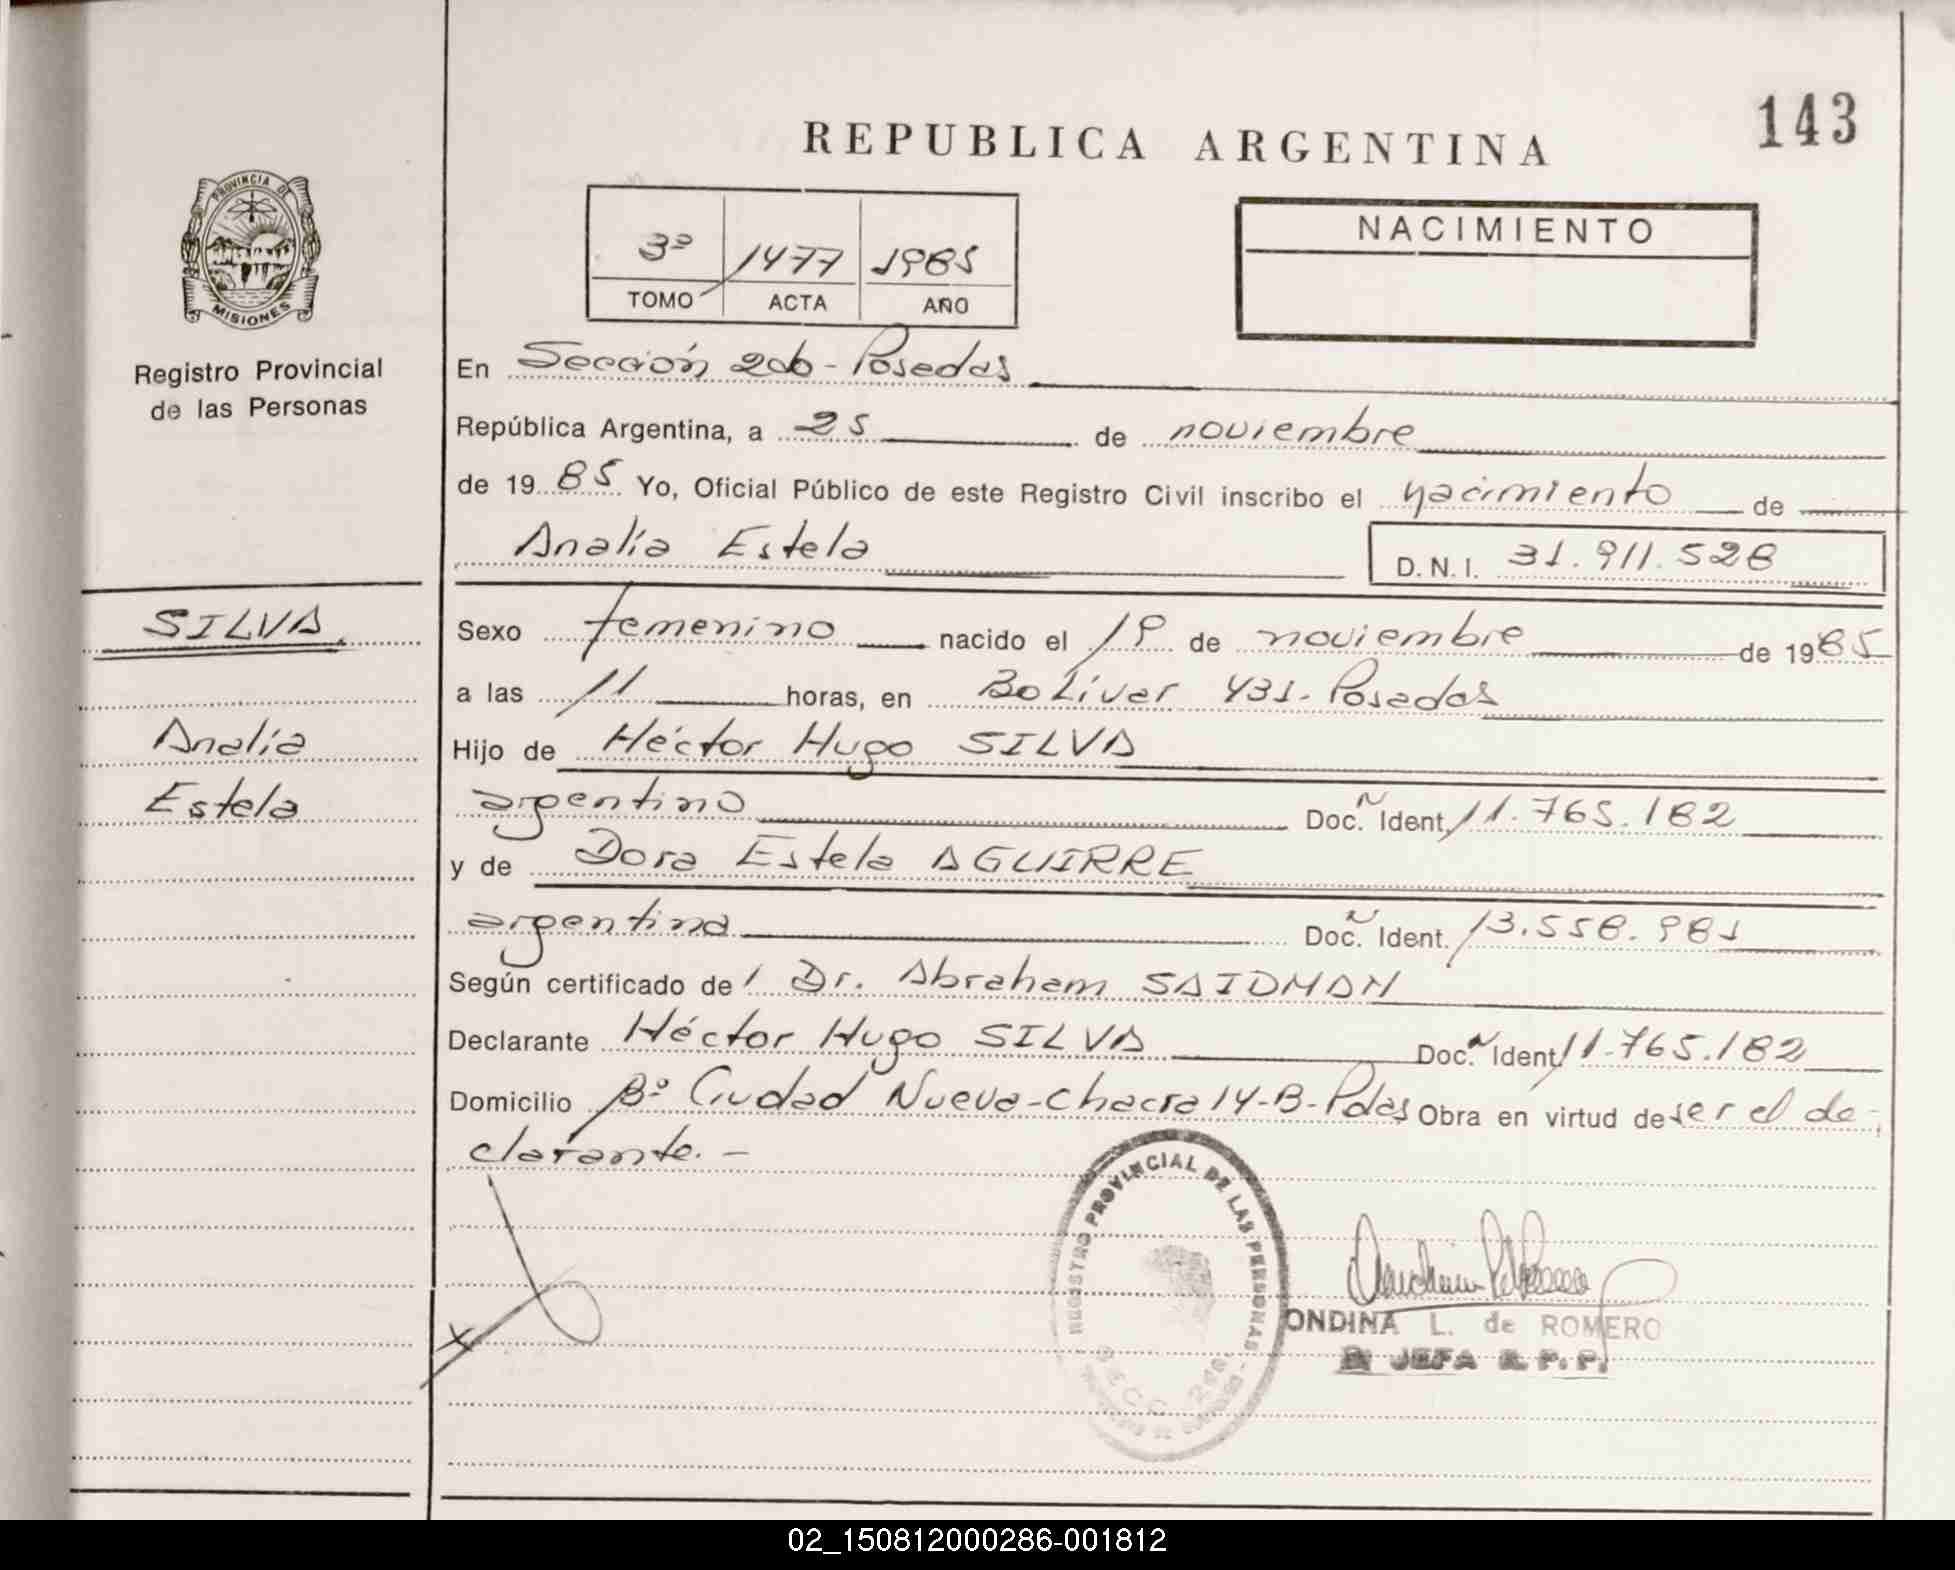 143
REPUBLICA ARGENTINA
PROVINCIA DE
MISIONES
Registro Provincial
de las Personas
3º 1477 1985
TOMO ACTA AÑO
NACIMIENTO
En Sección 2da - Posadas
República Argentina, a 25 de noviembre
de 1985 Yo, Oficial Público de este Registro Civil inscribo el nacimiento de
Analía Estela D.N.I. 31.911.528
SILVA
Analía
Estela
Sexo femenino nacido el 19 de noviembre de 1985
a las 11 horas, en Bolívar 431 - Posadas
Hijo de Héctor Hugo SILVA
argentino Doc. Ident. 11.765.182
y de Dora Estela AGUIRRE
argentina Doc. Ident. 13.558.981
Según certificado de l Dr. Abraham SAIDMAN
Declarante Héctor Hugo SILVA Doc. Ident. 11.765.182
Domicilio Bº Ciudad Nueva - Chacra 14-B - Pdas Obra en virtud de ser el de-
clarante. -
REGISTRO PROVINCIAL DE LAS PERSONAS
SECC. 2da.
ONDINA L. de ROMERO
JEFA R. P. P.
02_150812000286-001812